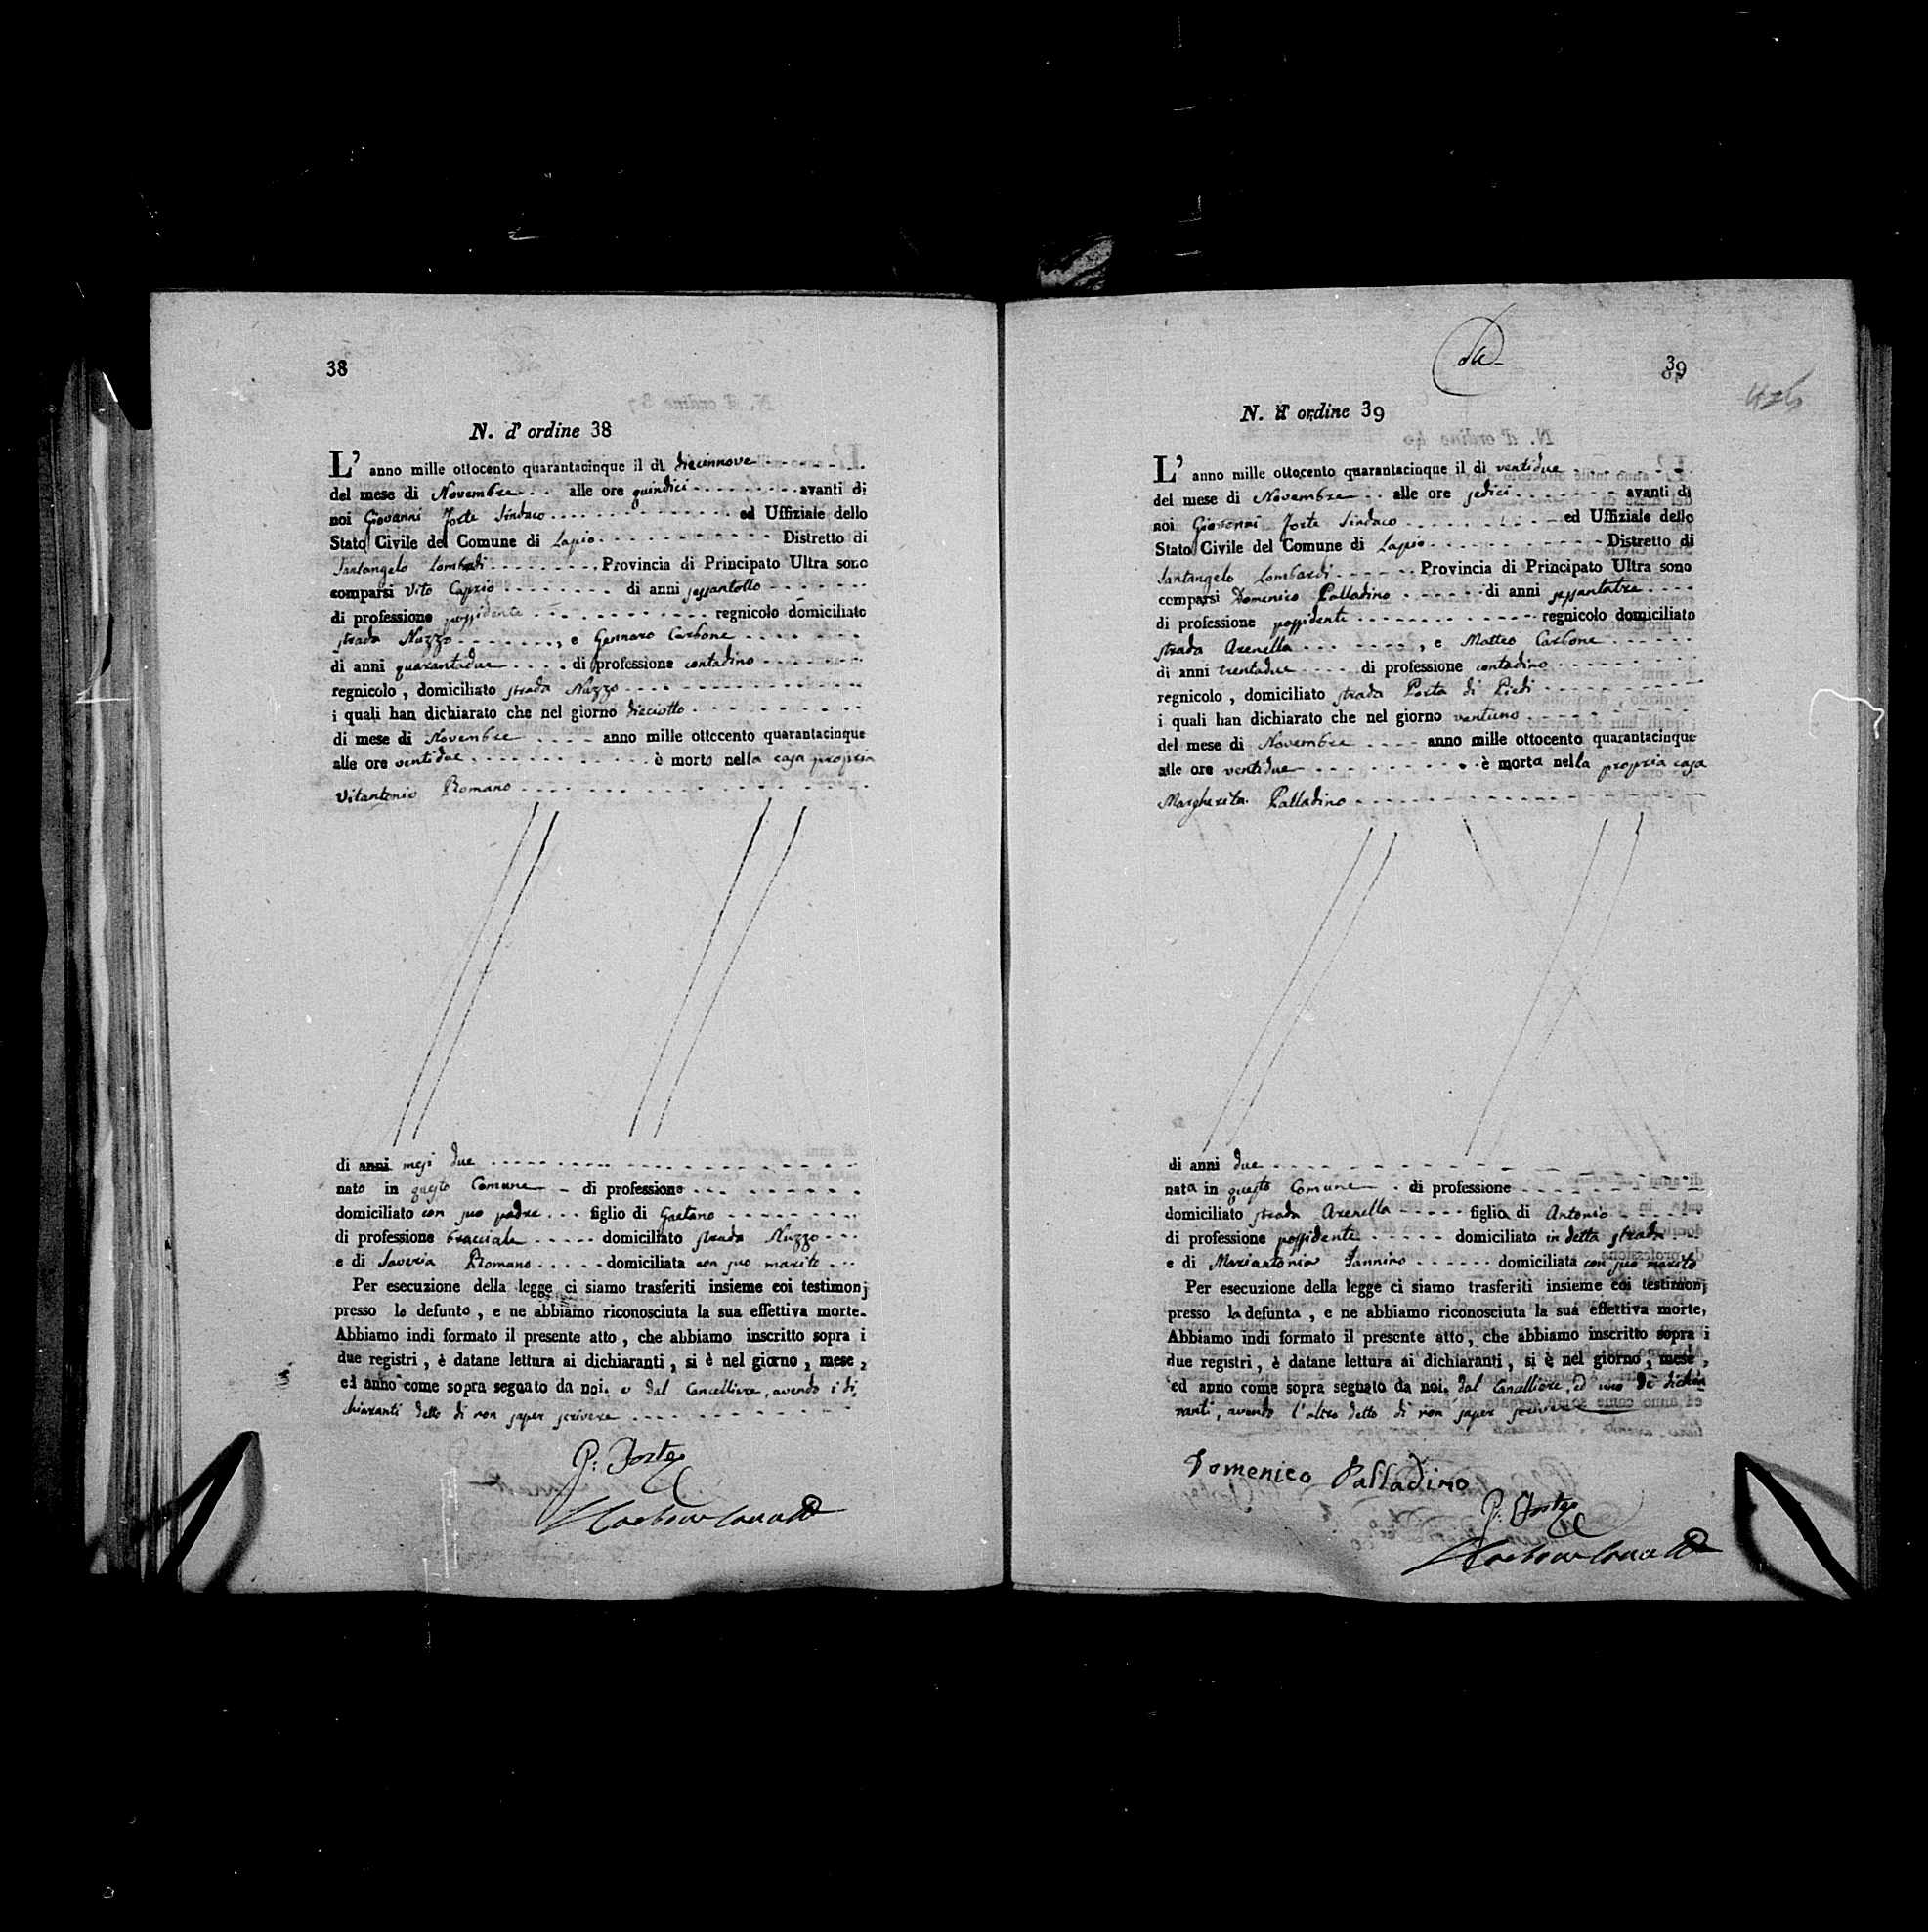 38
N. d' ordine 38
L' anno mille ottocento quarantacinque il dì diecinnove
del mese di Novembre alle ore quindici avanti di
noi Giovanni Forte Sindaco ed Uffiziale dello
Stato Civile del Comune di Lapio Distretto di
Santangelo Lombardi Provincia di Principato Ultra sono
comparsi Vito Caprio di anni sessantotto
di professione possidente regnicolo domiciliato
strada Nuzzo , e Gennaro Carbone
di anni quarantadue di professione contadino
regnicolo , domiciliato strada Nuzzo
i quali han dichiarato che nel giorno dieciotto
di mese di Novembre anno mille ottocento quarantacinque
alle ore ventidue è morto nella casa propria
Vitantonio Romano
di anni mesi due
nato in questo Comune di professione
domiciliato con suo padre figlio di Gaetano
di professione bracciale domiciliato strada Nuzzo
e di Saveria Romano domiciliata con suo marito
Per esecuzione della legge ci siamo trasferiti insieme coi testimonj
presso lo defunto , e ne abbiamo riconosciuta la sua effettiva morte.
Abbiamo indi formato il presente atto , che abbiamo inscritto sopra i
due registri , è datane lettura ai dichiaranti , si è nel giorno , mese ,
ed anno come sopra segnato da noi. e dal Cancelliere, avendo i di
chiaranti detto di non saper scrivere
P: Forte
39
N. d' ordine 39
L' anno mille ottocento quarantacinque il dì ventidue
del mese di Novembre alle ore sedici avanti di
noi Giovanni Forte Sindaco ed Uffiziale dello
Stato Civile del Comune di Lapio Distretto di
Santangelo Lombardi Provincia di Principato Ultra sono
comparsi Domenico Palladino di anni sessantatre
di professione possidente regnicolo domiciliato
strada Arenella , e Matteo Carbone
di anni trentadue di professione contadino
regnicolo , domiciliato strada Porta di Piedi
i quali han dichiarato che nel giorno ventuno
del mese di Novembre anno mille ottocento quarantacinque
alle ore ventidue è morta nella propria casa
Margherita Palladino
di anni due
nata in questo Comune di professione
domiciliato strada Arenella figlia di Antonio
di professione possidente domiciliato in detta strada
e di Mariantonia Iannino domiciliata con suo marito
Per esecuzione della legge ci siamo trasferiti insieme coi testimonj
presso la defunta , e ne abbiamo riconosciuta la sua effettiva morte,
Abbiamo indi formato il presente atto, che abbiamo inscritto sopra i
due registri , è datane lettura ai dichiaranti , si è nel giorno , mese ,
ed anno come sopra segnato da noi. dal Cancelliere, ed uno de' dichia
ranti, avendo l'altro detto di non saper scrivere
Domenico Palladino
P: Forte